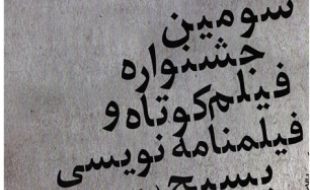 سومین
جشنواره
فیلم کوتاه و
فیلمنامه نویسی
بسیج